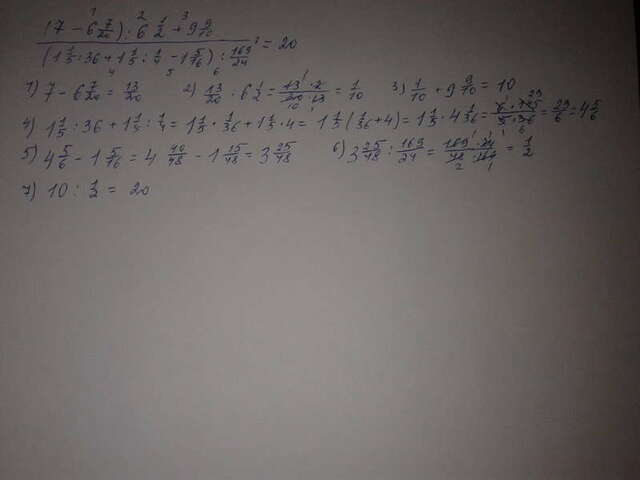 (7 - 6 7/20) : 6 1/2 + 9 9/10
(1 1/5 : 36 + 1 1/5 : 1/4 - 1 5/16) : 169/24 = 20
1) 7 - 6 7/20 = 13/20 2) 13/20 : 6 1/2 = 13 · 2/20 · 13 = 1/10 3) 1/10 + 9 9/10 = 10
4) 1 1/5 : 36 + 1 1/5 : 1/4 = 1 1/5 · 1/36 + 1 1/5 · 4 = 1 1/5 (1/36 + 4) = 1 1/5 · 4 1/36 = 6 · 145/5 · 36 = 29/6 = 4 5/6
5) 4 5/6 - 1 5/16 = 4 40/48 - 1 15/48 = 3 25/48 6) 3 25/48 : 169/24 = 169 · 24/48 · 169 = 1/2
7) 10 : 1/2 = 20